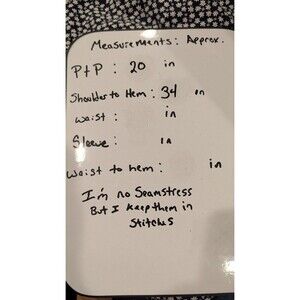 Measurements: Approx.
PtP : 20 in
Shoulder to Hem : 34 in
waist : in
Sleeve : in
waist to hem : in
I'm no Seamstress
But I keep them in
Stitches